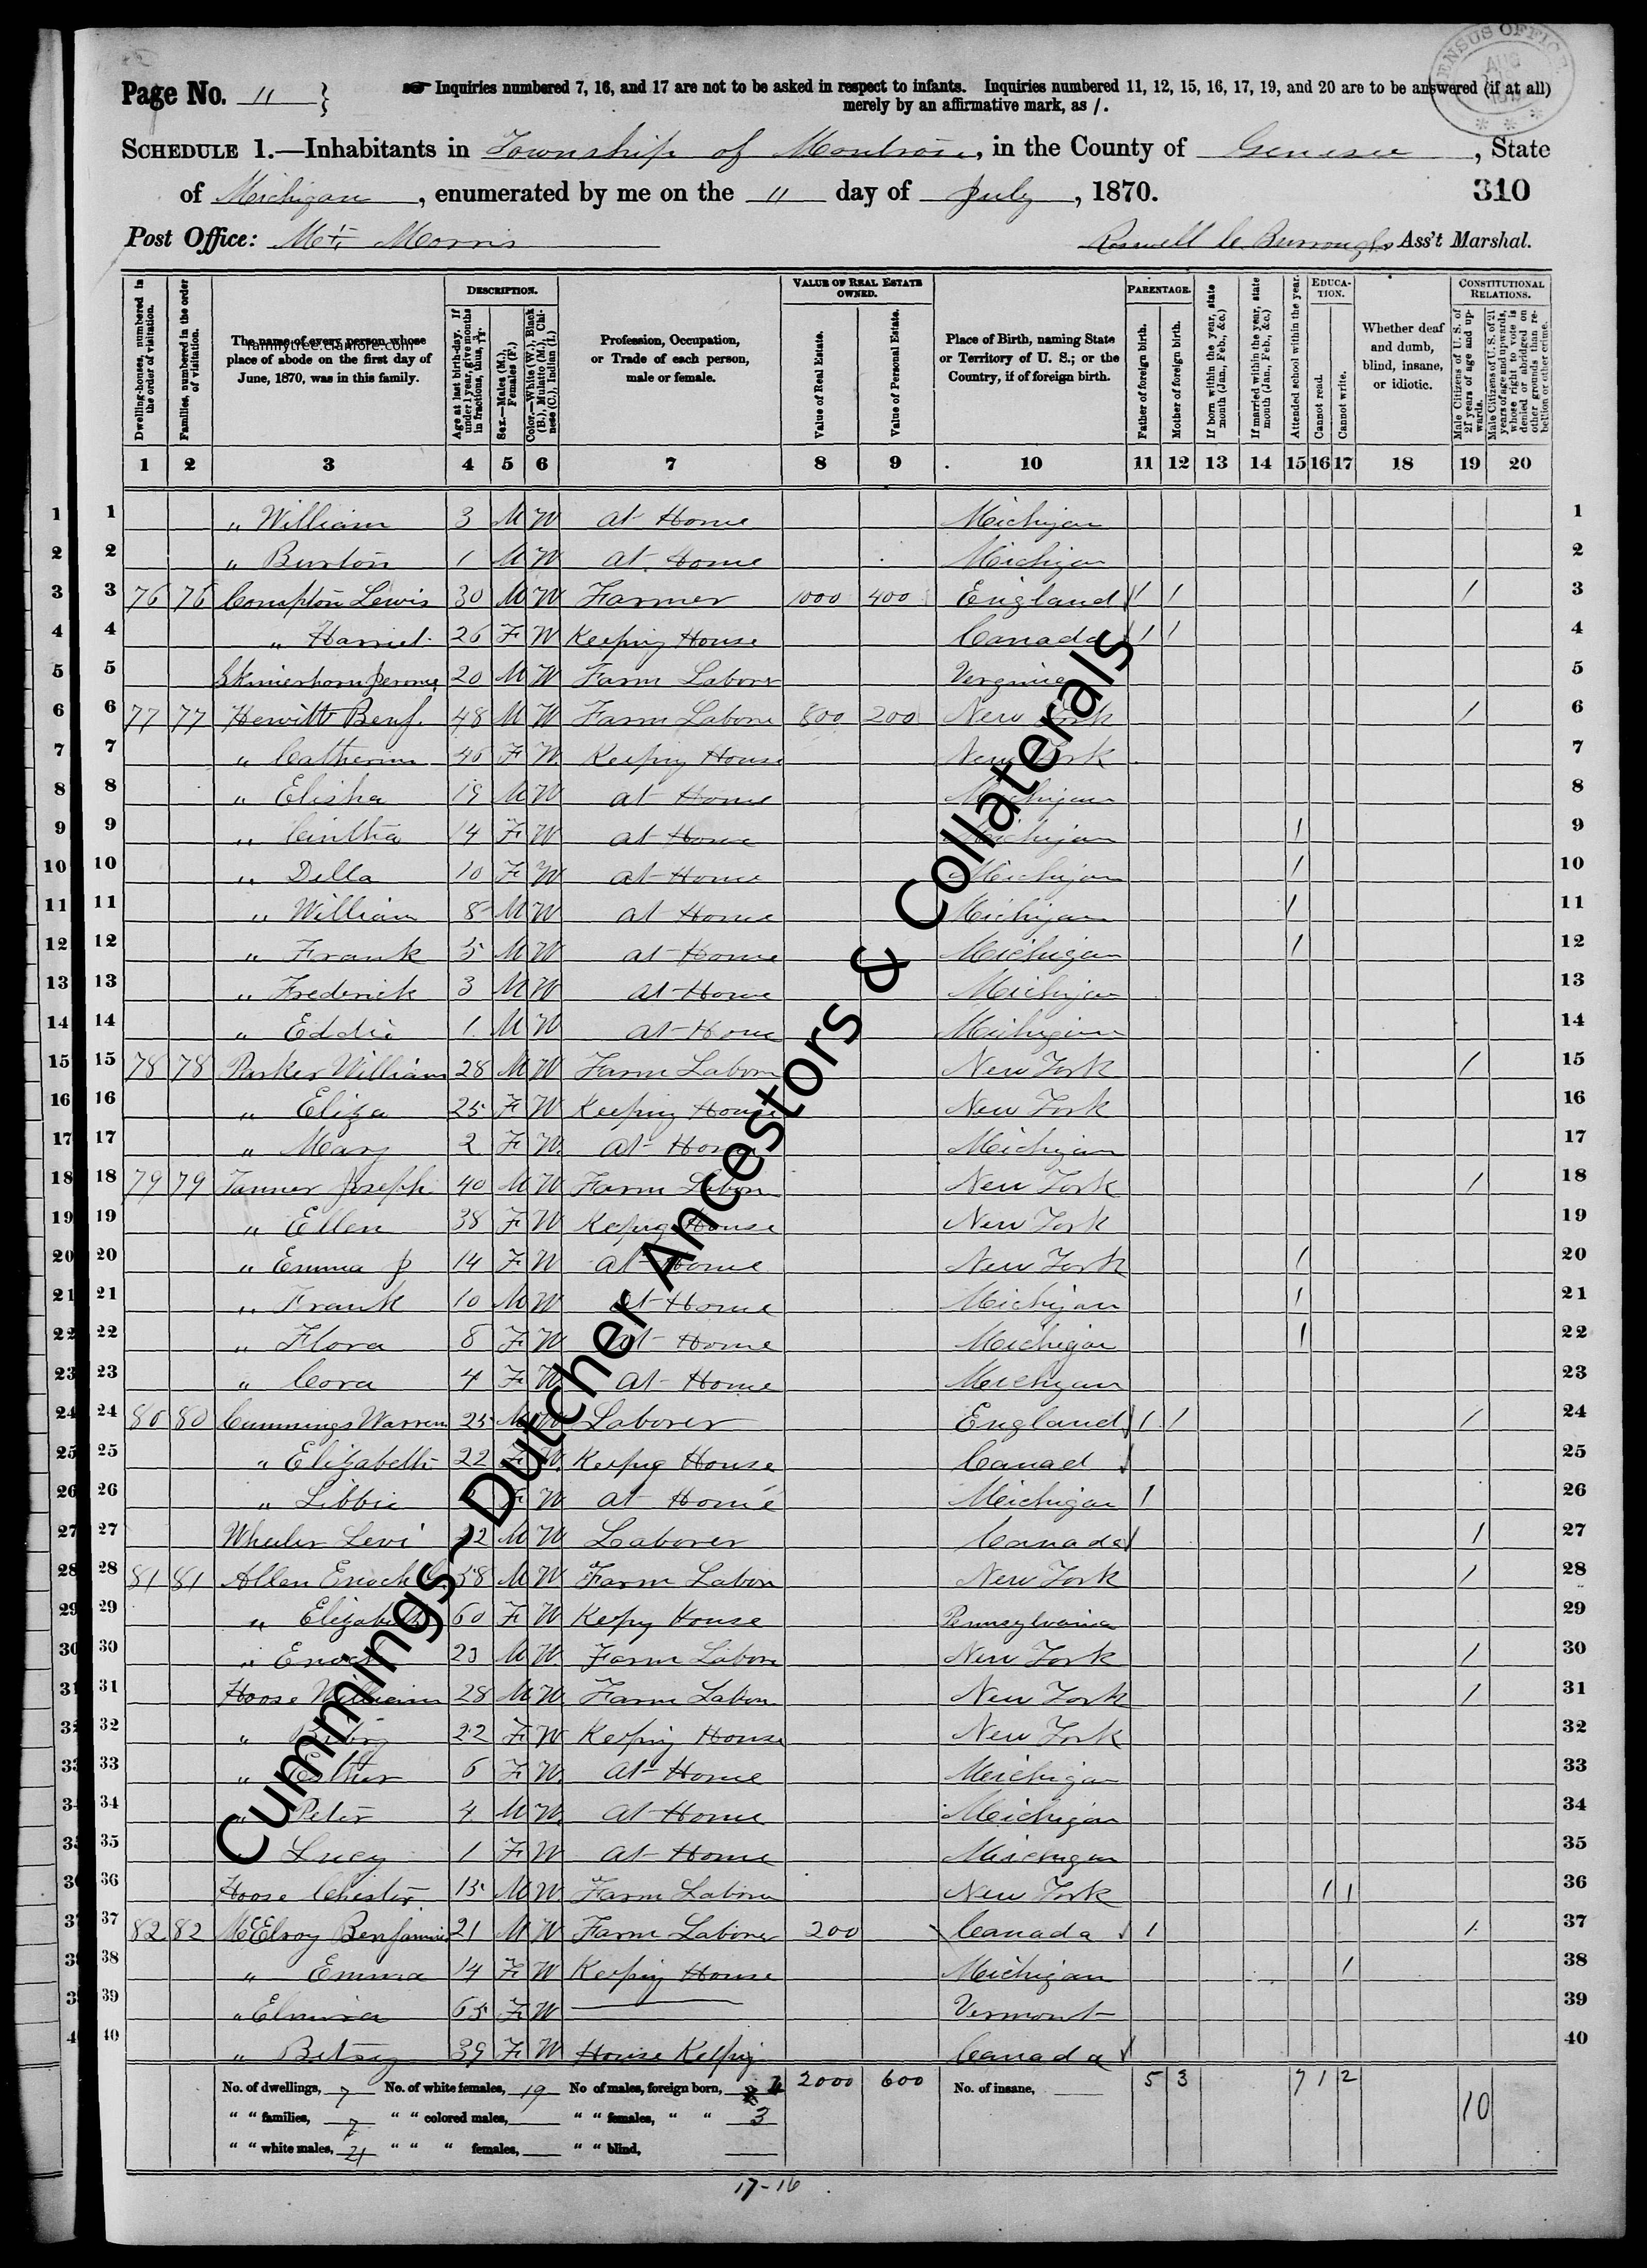 CENSUS OFFICE
Page No. 11 } Inquiries numbered 7, 16, and 17 are not to be asked in respect to infants. Inquiries numbered 11, 12, 15, 16, 17, 19, and 20 are to be answered (if at all)
merely by an affirmative mark, as /.
SCHEDULE 1.—Inhabitants in Township of Montrose, in the County of Genesee, State
of Michigan, enumerated by me on the 11 day of July, 1870. 310
Post Office: Mt. Morris Burroughs Ass't Marshal.
Dwelling-houses, numbered in the order of visitation.
Families, numbered in the order of visitation.
The name of every person whose place of abode on the first day of June, 1870, was in this family.
familytree.clanlore.com
DESCRIPTION.
Age at last birth-day. If under 1 year, give months in fractions, thus,
Sex.—Males (M.), Females (F.)
Color.—White (W.), Black (B.), Mulatto (M.), Chinese (C.), Indian (I.)
Profession, Occupation, or Trade of each person, male or female.
VALUE OF REAL ESTATE OWNED.
Value of Real Estate.
Value of Personal Estate.
Place of Birth, naming State or Territory of U. S.; or the Country, if of foreign birth.
PARENTAGE.
Father of foreign birth.
Mother of foreign birth.
If born within the year, state month (Jan., Feb., &c.)
If married within the year, state month (Jan., Feb., &c.)
Attended school within the year.
EDUCATION.
Cannot read.
Cannot write.
Whether deaf and dumb, blind, insane, or idiotic.
CONSTITUTIONAL RELATIONS.
Male Citizens of U. S. of 21 years of age and upwards.
Male Citizens of U. S. of 21 years of age and upwards, whose right to vote is denied or abridged on other grounds than rebellion or other crime.
1 2 3 4 5 6 7 8 9 10 11 12 13 14 15 16 17 18 19 20
1 1 " William 3 M W at Home Michigan 1
2 2 " Burton 1 M W at Home Michigan 2
3 3 76 76 Compton Lewis 30 M W Farmer 1000 400 England / / / 3
4 4 " Harriet 26 F W Keeping House Canada / / 4
5 5 Skinerhorn Jerome 20 M W Farm Labor Verginia 5
6 6 77 77 Hewitt Benf. 48 M W Farm Labore 800 200 New York / 6
7 7 " Catherine 46 F W Keeping House New York 7
8 8 " Elisha 19 M W at Home Michigan 8
9 9 " Cinthia 14 F W at Home Michigan / 9
10 10 " Della 10 F W at Home Michigan / 10
11 11 " William 8 M W at Home Michigan / 11
12 12 " Frank 5 M W at Home Michigan / 12
13 13 " Frederick 3 M W at Home Michigan 13
14 14 " Eddie 1 M W at Home Michigan 14
15 15 78 78 Parker William 28 M W Farm Labor New York / 15
16 16 " Eliza 25 F W Keeping House New York 16
17 17 " Mary 2 F W at Home Michigan 17
18 18 79 79 Tanner Joseph 40 M W Farm Labor New York / 18
19 19 " Ellen 38 F W Kepig House New York 19
20 20 " Emma J 14 F W at Home New York / 20
21 21 " Frank 10 M W at Home Michigan / 21
22 22 " Flora 8 F W at Home Michigan / 22
23 23 " Cora 4 F W at Home Michigan 23
24 24 80 80 Cummings Warren 25 M W Laborer England / / / 24
25 25 " Elizabeth 22 F W Keepig House Canad 25
26 26 " Libbie F W at Home Michigan / 26
27 27 Wheeler Levi M W Laborer Canada / 27
28 28 81 81 Allen Enoch 58 M W Farm Labor New York / 28
29 29 " Elizabeth 60 F W Keepg House Pennsylvania 29
30 30 " Enoch 23 M W Farm Labore New York / 30
31 31 Hoose William 28 M W Farm Labor New York / 31
32 32 " 22 F W Keeping House New York 32
33 33 " Esther 6 F W at Home Michigan 33
34 34 " Peter 4 M W at Home Michigan 34
35 35 " Lucy 1 F W at Home Michigan 35
36 36 Hoose Chester 15 M W Farm Labore New York / / 36
37 37 82 82 McElroy Benjamin 21 M W Farm Laborer 200 Canada / / 37
38 38 " Emma 14 F W Keeping House Michigan / 38
39 39 " Elmira 65 F W Vermont 39
40 40 " Betsey 39 F W House Keepig Canada 40
No. of dwellings, 7 No. of white females, 19 No of males, foreign born, 4 2000 600 No. of insane, 5 3 7 1 2 10
" " families, 7 " " colored males, " " females, " " 3
" " white males, 21 " " " females, " " blind,
17-16
Cummings ~ Dutcher Ancestors & Collaterals